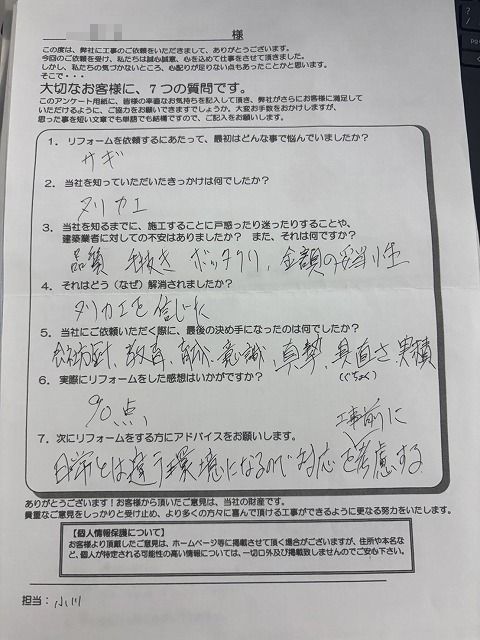 様
この度は、弊社に工事のご依頼をいただきまして、ありがとうございます。
今回のご依頼を受け、私たちは誠心誠意、心を込めて仕事をさせて頂きました。
しかし、私たちの気づかないところ、心配りが足りない点もあったことかと思います。
そこで・・・
大切なお客様に、７つの質問です。
このアンケート用紙に、皆様の率直なお気持ちを記入して頂き、弊社がさらにお客様に満足して
いただけるように、ご協力をお願いできますでしょうか。大変お手数をおかけしますが、
思った事を短い文章でも単語でも結構ですので、ご記入をお願いします。
1．リフォームを依頼するにあたって、最初はどんな事で悩んでいましたか？
サギ
2．当社を知っていただいたきっかけは何でしたか？
ヌリカエ
3．当社を知るまでに、施工することに戸惑ったり迷ったりすることや、
建築業者に対しての不安はありましたか？ また、それは何ですか？
品質 手抜き ボッタクリ、金額の妥当性
4．それはどう（なぜ）解消されましたか？
ヌリカエを信じた
5．当社にご依頼いただく際に、最後の決め手になったのは何でしたか？
会社方針、教育、意識、真摯、愚直さ 実積
(ぐちょく)
6．実際にリフォームをした感想はいかがですか？
90点
7．次にリフォームをする方にアドバイスをお願いします。
工事前に
日常とは違う環境になるので対応を考慮する
ありがとうございます！お客様から頂いたご意見は、当社の財産です。
貴重なご意見をしっかりと受け止め、より多くの方々に喜んで頂ける工事ができるように更なる努力をいたします。
【個人情報保護について】
お客様より頂戴したご意見は、ホームページ等に掲載させて頂く場合がございますが、住所や本名な
ど、個人が特定される可能性の高い情報については、一切口外及び掲載致しませんのでご安心下さい。
担当：小川